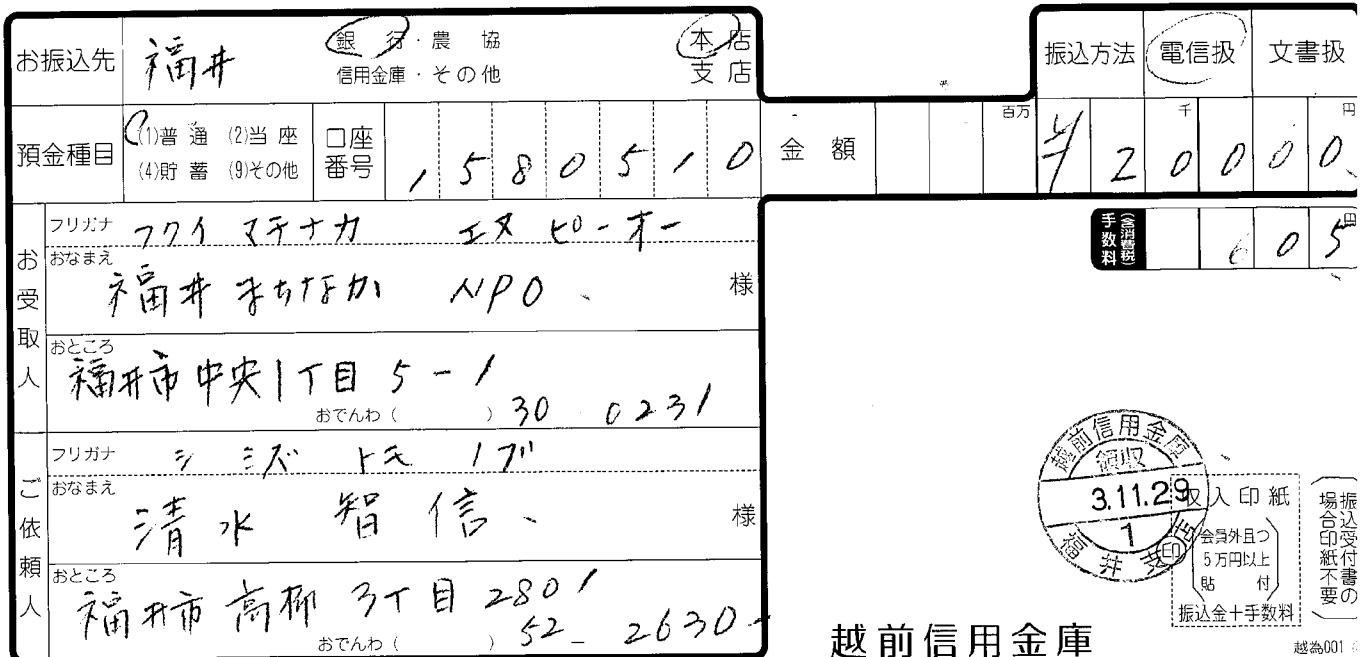 お振込先 福井 銀行・農協 本店
信用金庫・その他 支店
振込方法 電信扱 文書扱
預金種目 (1)普通 (2)当座 口座番号 1580510 金額 百万 千 円 ¥20000
(4)貯蓄 (9)その他
手数料 (含消費税) 605円
お受取人
フリガナ フクイ マチナカ エヌ ピーオー
おなまえ
福井まちなか NPO 様
おところ
福井市中央1丁目5-1
おでんわ ( ) 30 0231
ご依頼人
フリガナ シミズ トモノブ
おなまえ
清水 智信 様
おところ
福井市高柳 3丁目2801
おでんわ ( ) 52-2630
越前信用金庫
領収
3.11.29
1
福井
収入印紙
会員外且つ
5万円以上
貼付
印
振込金+手数料
振込受付書の
場合印紙不要
越前信用金庫
越為001